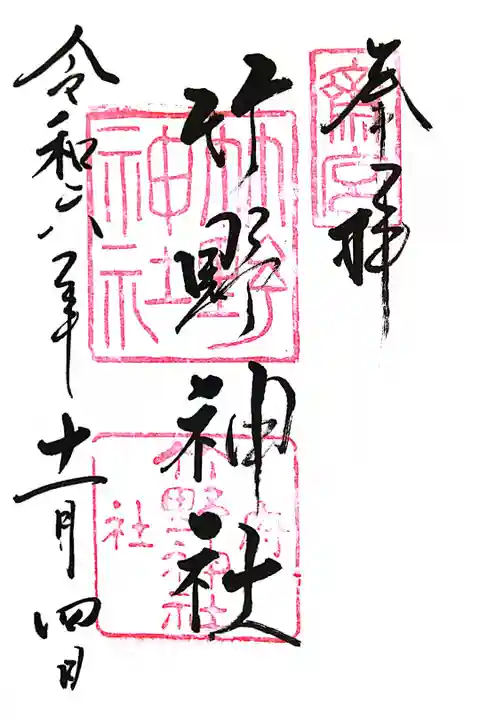 奉拝
齋宮
竹野神社
竹野神社
竹野神社
府社
令和六年十一月四日